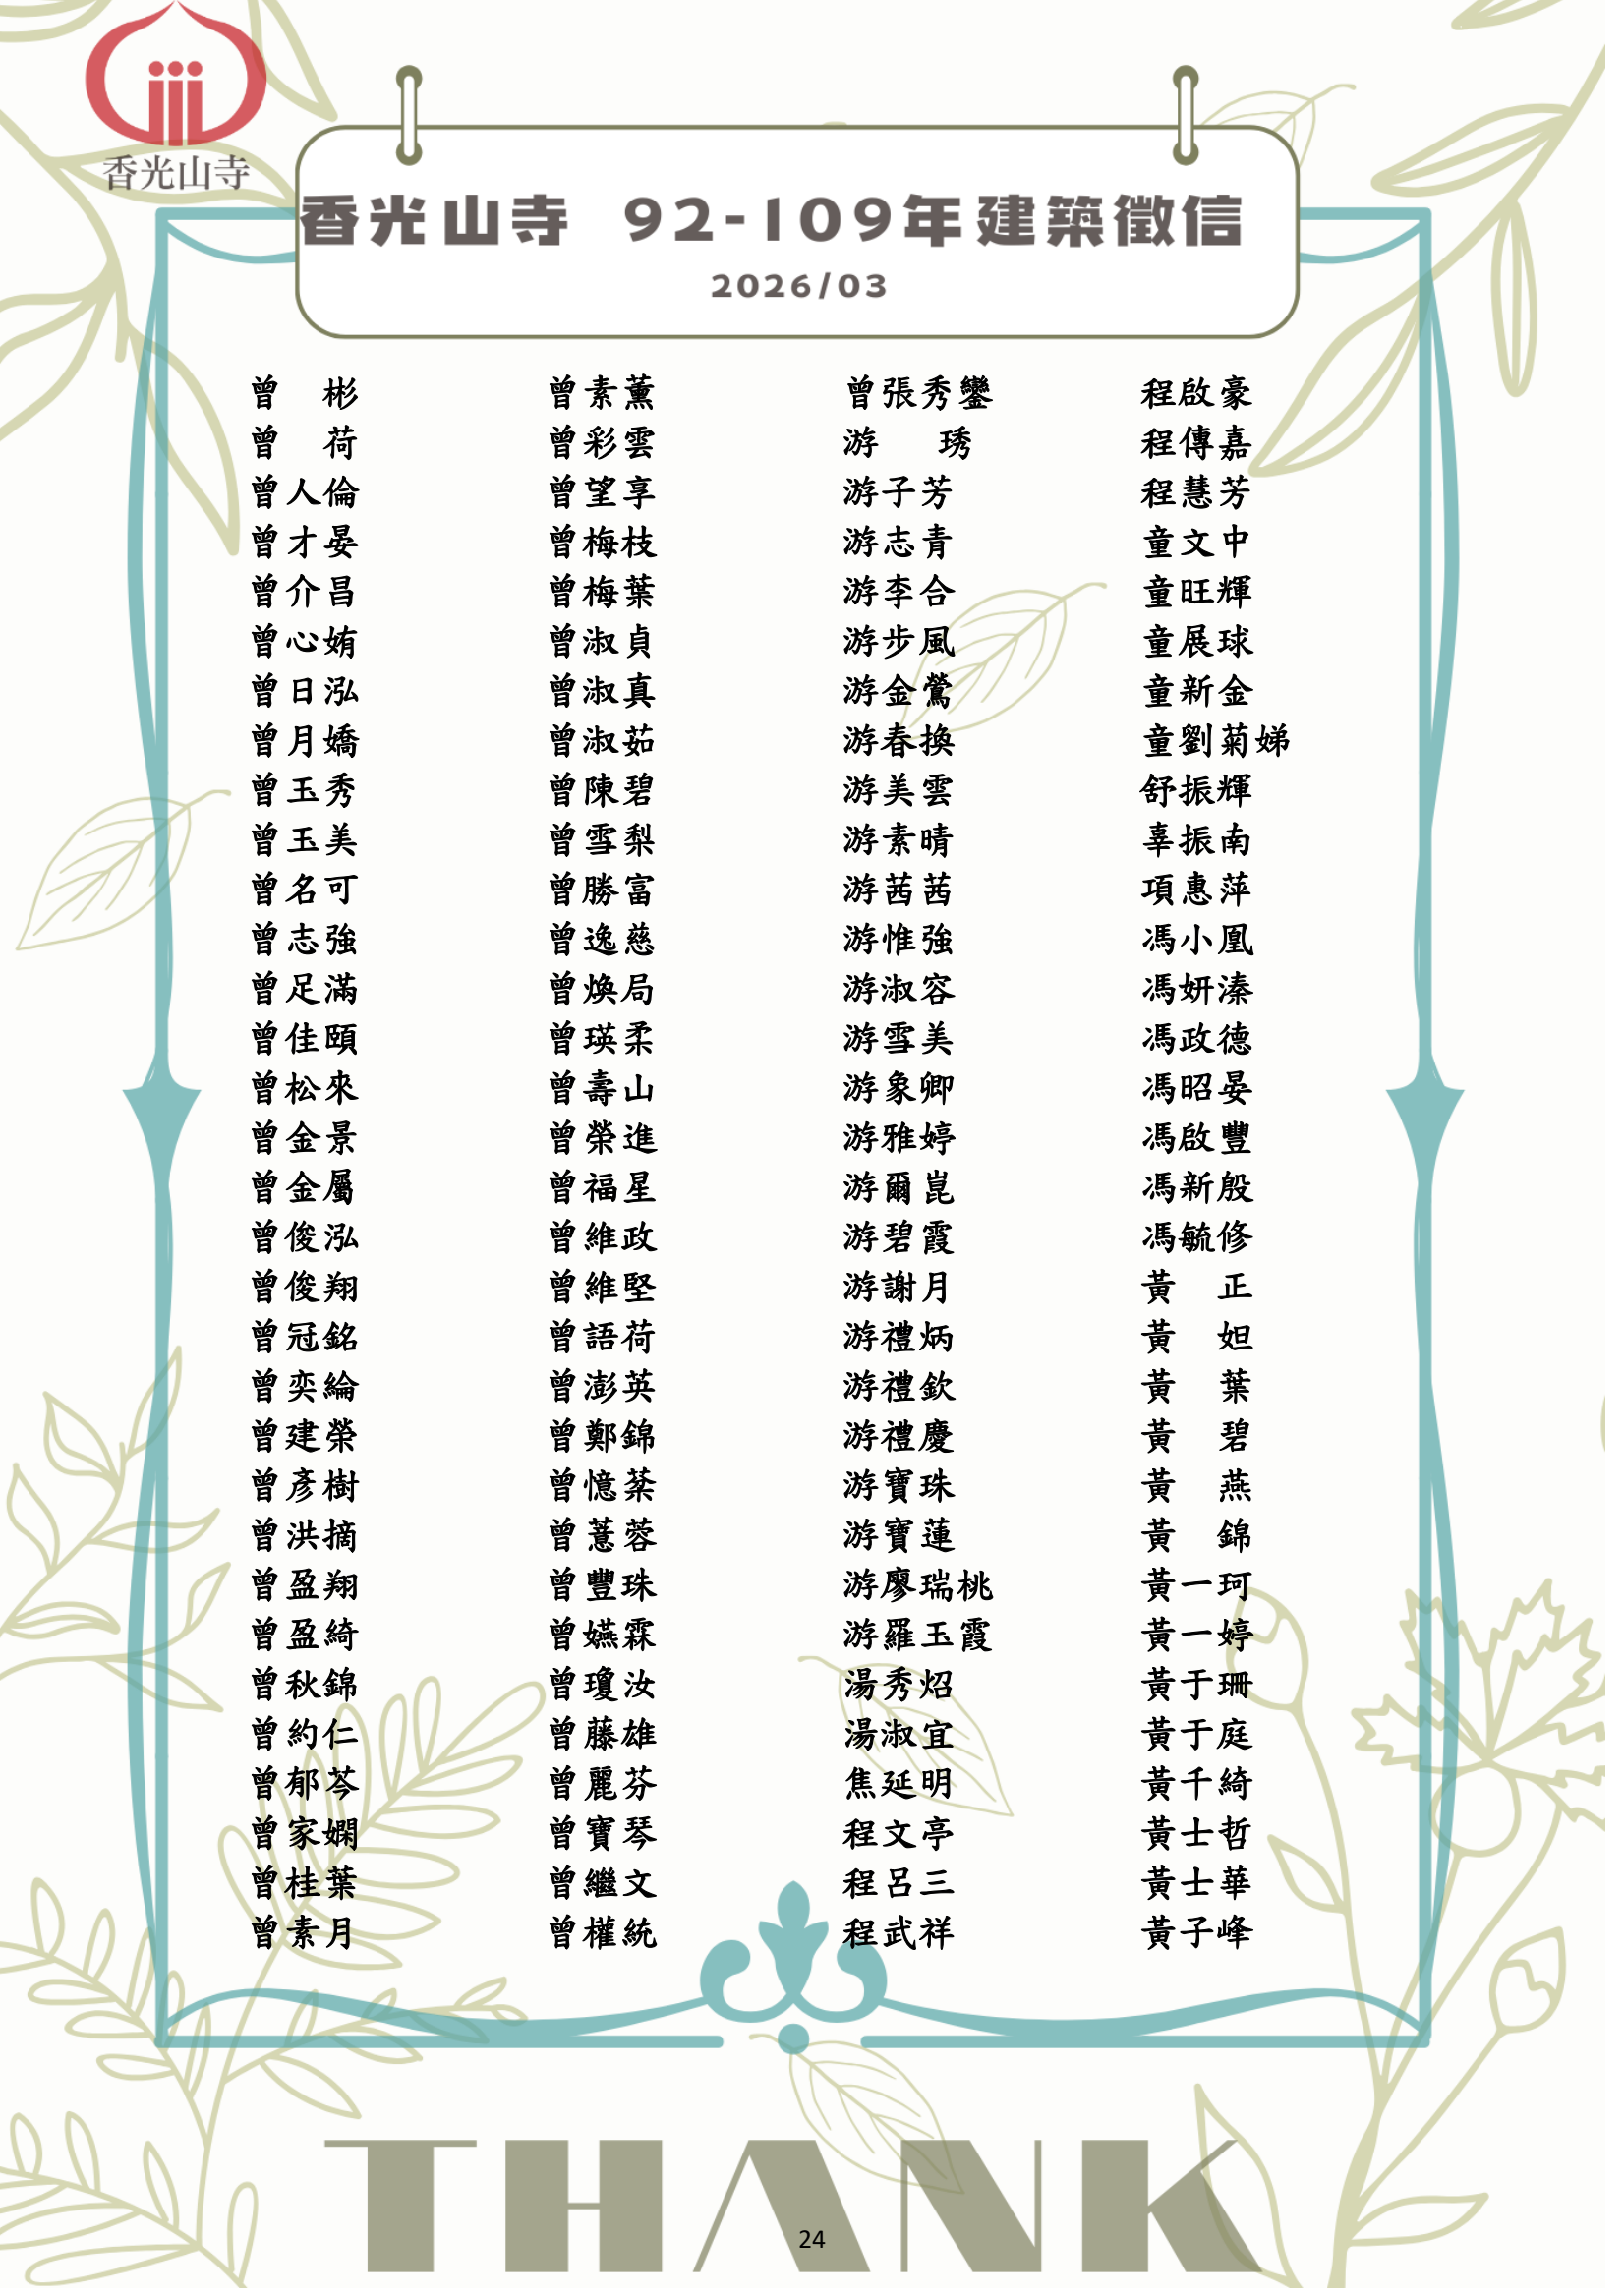 香光山寺
香光山寺 92-109年建築徵信
2026/03
曾 彬
曾 荷
曾人倫
曾才晏
曾介昌
曾心姷
曾日泓
曾月嬌
曾玉秀
曾玉美
曾名可
曾志強
曾足滿
曾佳頤
曾松來
曾金景
曾金屬
曾俊泓
曾俊翔
曾冠銘
曾奕綸
曾建榮
曾彥樹
曾洪摘
曾盈翔
曾盈綺
曾秋錦
曾約仁
曾郁芩
曾家嫻
曾桂葉
曾素月
曾素薰
曾彩雲
曾望享
曾梅枝
曾梅葉
曾淑貞
曾淑真
曾淑茹
曾陳碧
曾雪梨
曾勝富
曾逸慈
曾煥局
曾瑛柔
曾壽山
曾榮進
曾福星
曾維政
曾維堅
曾語荷
曾澎英
曾鄭錦
曾憶棻
曾薏蓉
曾豐珠
曾嬿霖
曾瓊汝
曾藤雄
曾麗芬
曾寶琴
曾繼文
曾權統
曾張秀鑾
游 琇
游子芳
游志青
游李合
游步風
游金鶯
游春換
游美雲
游素晴
游茜茜
游惟強
游淑容
游雪美
游象卿
游雅婷
游爾崑
游碧霞
游謝月
游禮炳
游禮欽
游禮慶
游寶珠
游寶蓮
游廖瑞桃
游羅玉霞
湯秀炤
湯淑宜
焦延明
程文亭
程呂三
程武祥
程啟豪
程傳嘉
程慧芳
童文中
童旺輝
童展球
童新金
童劉菊娣
舒振輝
辜振南
項惠萍
馮小凰
馮妍溱
馮政德
馮昭晏
馮啟豐
馮新殷
馮毓修
黃 正
黃 妲
黃 葉
黃 碧
黃 燕
黃 錦
黃一珂
黃一婷
黃于珊
黃于庭
黃千綺
黃士哲
黃士華
黃子峰
THANK
24